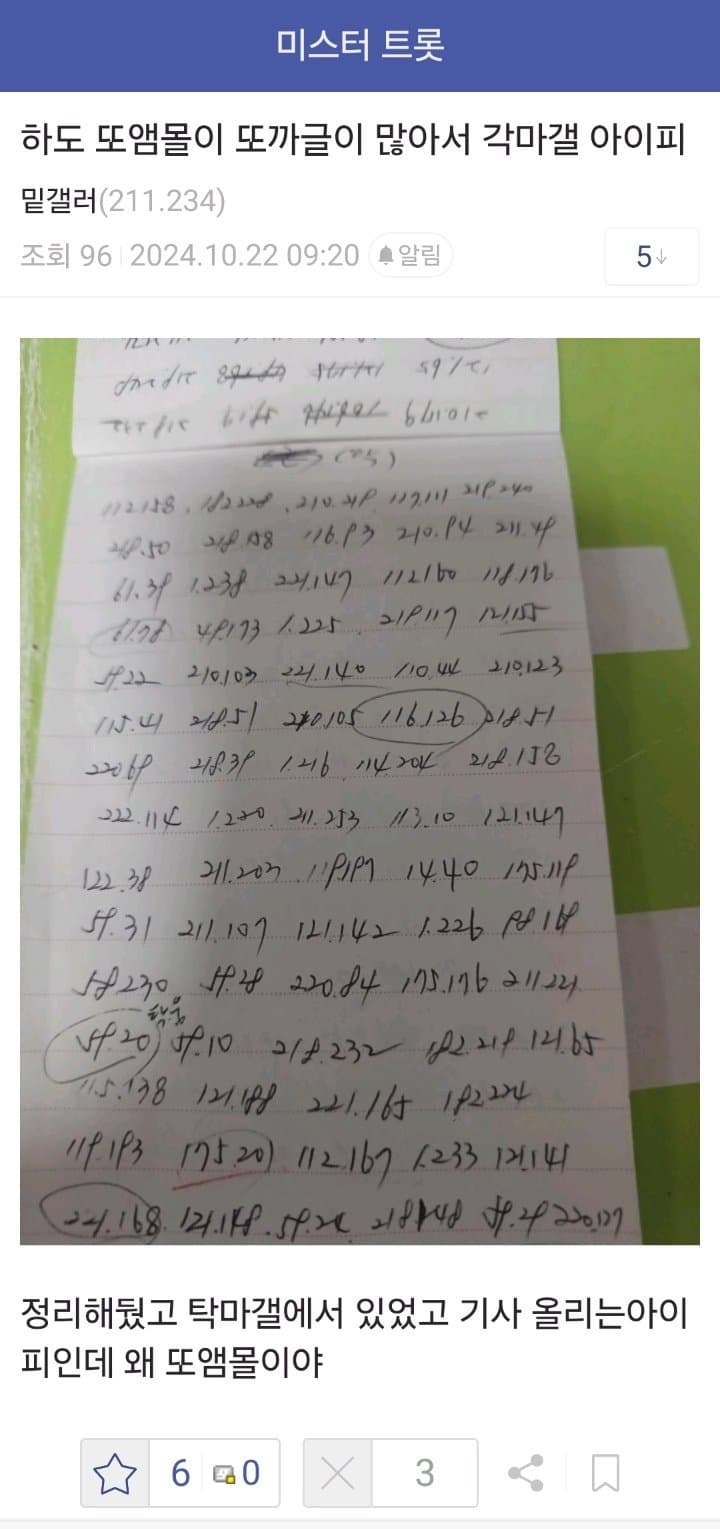 미스터 트롯
하도 또앰몰이 또까글이 많아서 각마갤 아이피
밑갤러(211.234)
조회 96 2024.10.22 09:20 알림
5↓
112.158. 182.228. 210.219 117.111 218.240
218.50 218.158 116.93 210.94 211.49
61.39 1.238 221.147 112.160 118.176
49.173 1.225. 219.117 121.155
59.22 210.103 221.140 110.44 210.123
115.41 218.51 210.105 116.126 218.51
220.69 218.39 1.216 114.204 218.158
222.114 1.220. 211.253 113.10 121.147
122.38 211.203. 119.197 14.40 175.119
59.31 211.107 121.142 1.226 98.169
58.230. 59.28 220.84 175.176 211.221
59.20 59.10 218.232 182.219 121.65
115.138 121.188 221.165 182.224
119.193 175.20 112.167 1.233 121.141
221.168. 121.148. 218.148 59.29 220.127
정리해뒀고 탁마갤에서 있었고 기사 올리는아이
피인데 왜 또앰몰이야
6 0 3